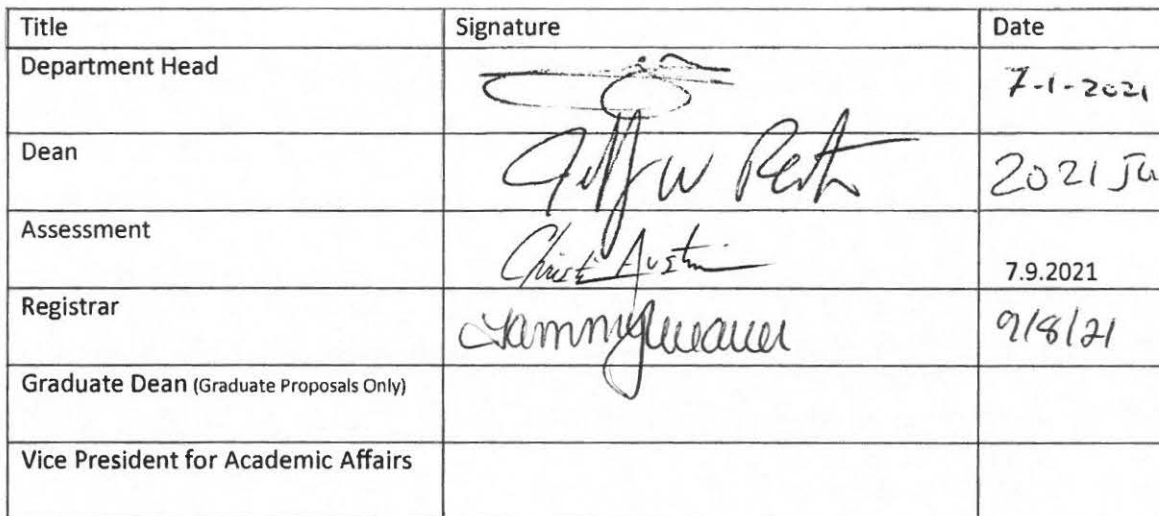 Title Signature Date
Department Head 7-1-2021
Dean W 2021
Assessment Christi Austin 7.9.2021
Registrar Tammy Weaver 9/8/21
Graduate Dean (Graduate Proposals Only)
Vice President for Academic Affairs